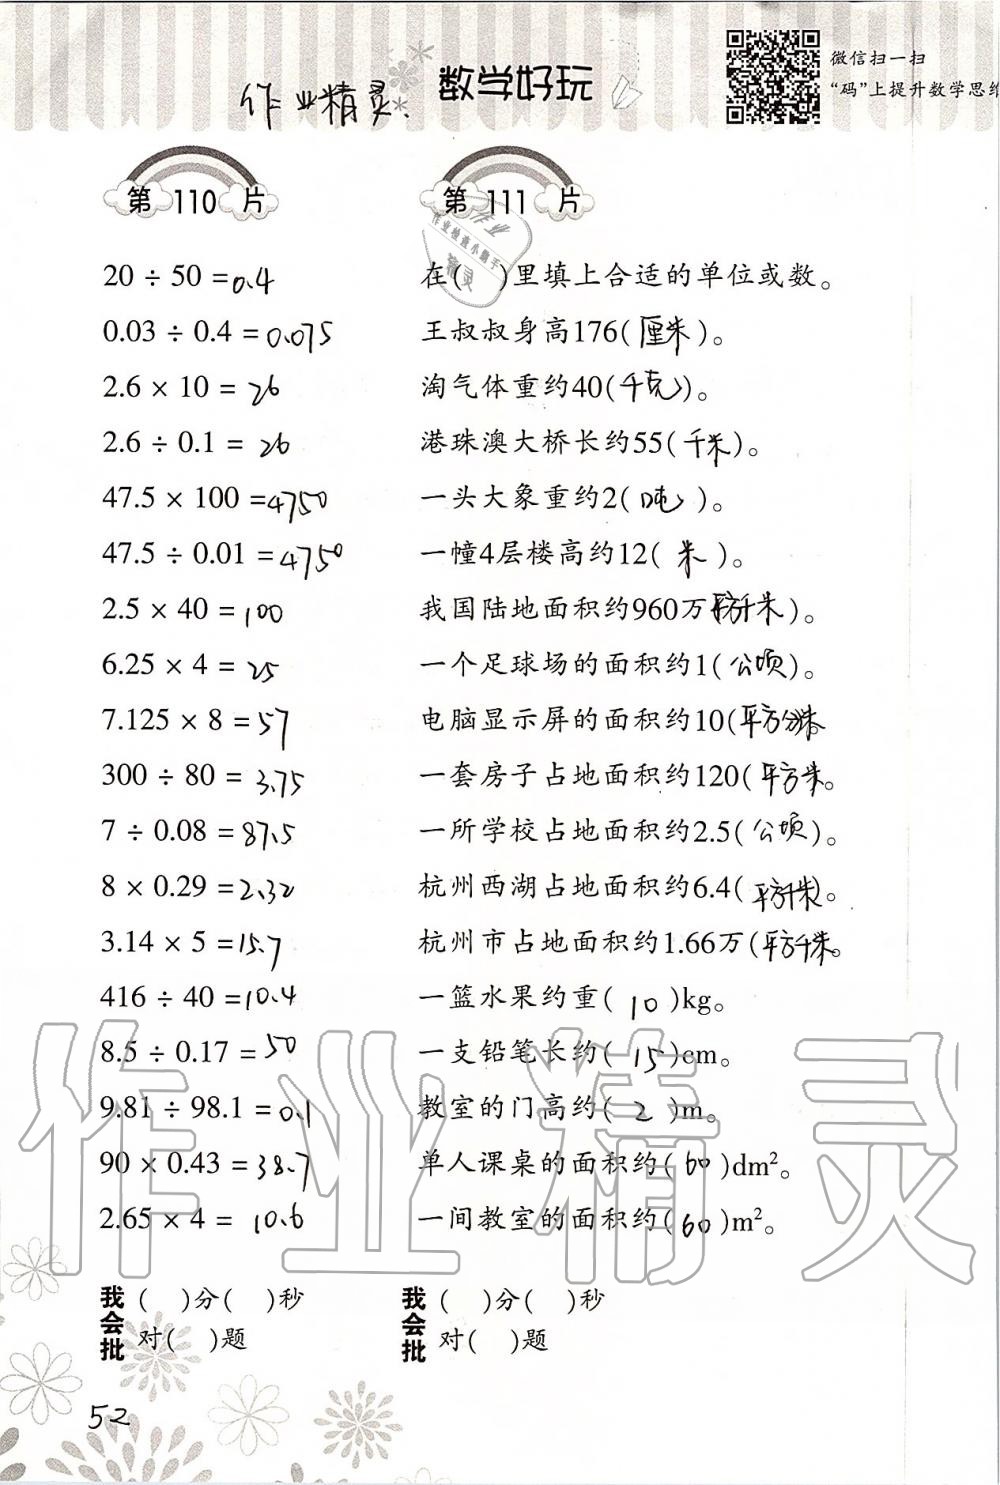 数学好玩
作业精灵
微信扫一扫
“码”上提升数学思维
第 110 片
20 ÷ 50 = 0.4
0.03 ÷ 0.4 = 0.075
2.6 × 10 = 26
2.6 ÷ 0.1 = 26
47.5 × 100 = 4750
47.5 ÷ 0.01 = 4750
2.5 × 40 = 100
6.25 × 4 = 25
7.125 × 8 = 57
300 ÷ 80 = 3.75
7 ÷ 0.08 = 87.5
8 × 0.29 = 2.32
3.14 × 5 = 15.7
416 ÷ 40 = 10.4
8.5 ÷ 0.17 = 50
9.81 ÷ 98.1 = 0.1
90 × 0.43 = 38.7
2.65 × 4 = 10.6
我会批
( )分( )秒
对( )题
第 111 片
在( )里填上合适的单位或数。
王叔叔身高176(厘米)。
淘气体重约40(千克)。
港珠澳大桥长约55(千米)。
一头大象重约2(吨)。
一幢4层楼高约12(米)。
我国陆地面积约960万(平方千米)。
一个足球场的面积约1(公顷)。
电脑显示屏的面积约10(平方分米)。
一套房子占地面积约120(平方米)。
一所学校占地面积约2.5(公顷)。
杭州西湖占地面积约6.4(平方千米)。
杭州市占地面积约1.66万(平方千米)。
一篮水果约重(10)kg。
一支铅笔长约(15)cm。
教室的门高约(2)m。
单人课桌的面积约(60)dm²。
一间教室的面积约(60)m²。
我会批
( )分( )秒
对( )题
52
作业精灵